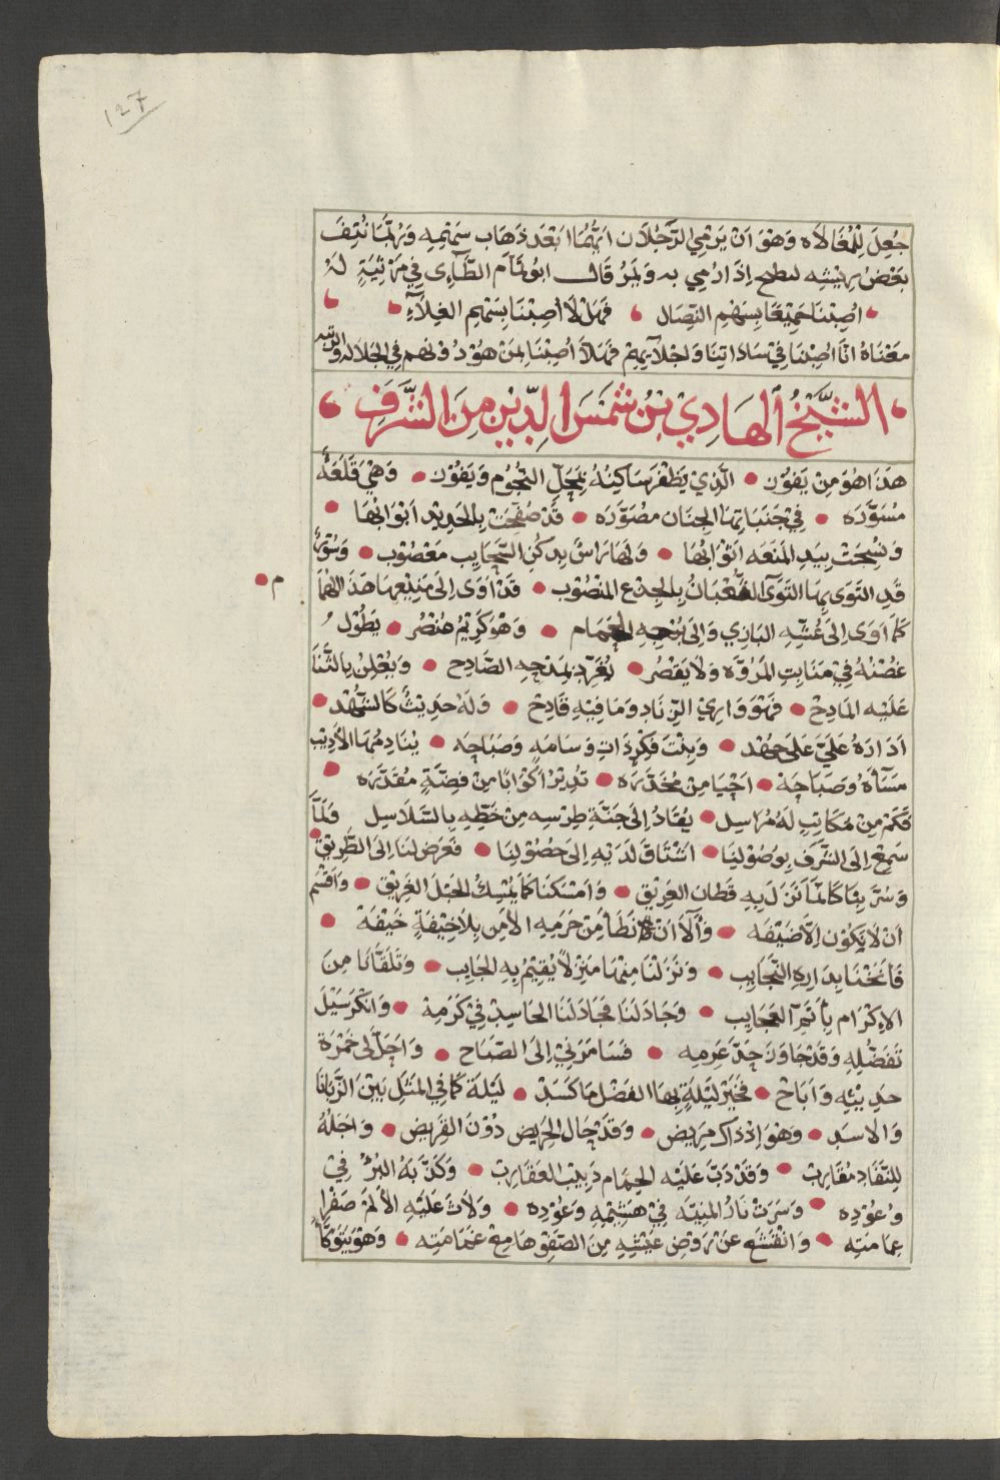 ١٢٧
جُعِلَ لِلْمُغَالَاه وَهْوَ اَنْ يَرْمِي الرَّجُلَان اَيُّهُمَا ابْعَد ذهَاب سَهْمِهِ وَرُبَّمَا نُتِفَ
بَعْضُ رِيْشِه اِذَا رُمِي به وَلَمَرُ قَالـ ابُو تمَّام الطَّآءِى فِي مَرْثِيَةٍ لَهُ
اُصِبْنَا جَمِيْعًا بِسَهْمِ النِّضَال فَهَلْ لَا اُصِبْنَا بِسَهْمِ الغِلَآءِ
مَعْنَاهُ انَّا اُصِبْنَا فِيْ سَادَاتِنَا وَاجْلَآئِهِمْ فَهَلَا اُصِبْنَا بِمَنْ هُوَ دُوْنهم فِي الجَلَاله
الشَّيْخُ الْهَادِيْ بْنُ شَمْسِ الدِّيْنِ مِنَ الشَّرَفِ
هَذَا هُوَ مِنْ يَفُوْز الَّذِيْ يَظْفَر سَاكِنُهُ بِمَحَلِّ النُّجُوْمِ وَيَفُوْز وَهْيَ قَلْعَةٌ
مُسَوَّرَه فِيْ جَنَبَاتِهَا الجِنَان مُصَوَّرَه قَدْ صُفِّحَتْ بِالحَدِيْد اَبْوَابُهَا
وَنُسِجَتْ بِيَدِ المَنَعَه اَثْوَابُهَا وَلَهَا رَاسٌ بِدكنِ السَّحَايِب مَعْصُوْب
قَدِ التَوَى بِهَا التِوَآءَ الثُّعْبَانُ بِالجِذْعِ المَنْصُوْب قَدْ اَوَى اِلَى هَذَا الهُمَام
كَمَا اَوَى اِلَى عُشِّهِ البَازِي وَاِلَى بُرْجِهِ الحَمَام وَهْوَ كَرِيْمُ عُنْصُر يَطُوْلُ
غُصْنُهُ فِيْ مَنَابِتِ المُرُوَّه وَلَا يَقْصُر يُغَرِّدُ بِمَدْحِهِ الصَّادِح وَيُعْلِنُ بِالثَّنَا
عَلَيْه المَادِحْ فَهْوَ وَارِيْ الزِّنَادِ وَمَا فِيْهِ قَادِحْ وَلَهُ حَدِيْثٌ كَالشَّهْد
اَدَارَهُ عَلَيَّ عَلَى جهْد وَبِنْتُ فِكْرٍ ذَاتِ وَسَامَهٍ وَصَبَاحَه يُنَادِمُهَا الأَدِيْب
مَسَآءهُ وَصَبَاحَهْ اَحْيَا مِنْ مُخَدَّرَه تُدِيْرُ اَكْوَابًا مِنْ فِضَّةٍ مُقَدَّرَه
فَكَمْ مِنْ مُكَاتِبٍ لَهُ مُرَاسِل يُقَادُ اِلَى جَنَّةِ طِرْسِه مِنْ خَطِّهِ بِالسَّلَاسِل فَلَمَّا
سَمِعَ اِلَى الشَّرَف بِوُصُوْلِنَا اشْتَاقَ لَدَيْهِ اِلَى حُصُوْلِنَا فَعَرَضَ لَنَا اِلَى الطَّرِيْق
وَسُرَّ بِنَا كَانَّمَا نَزَلَ بِهِ قُطَّان العَرِيْق وَامْسَكَنَا كَمَا يُمْسِكُ الحَبْلَ الغَرِيْق وَاقْسَمَ
اَنْ لَا يَكُوْن اِلَّا ضَيْفَه وَاَلَّا اَنْ نَطَأ مِنْ حَرَمِهِ الأَمِن بِلَا خِيْفَةٍ خَيْفَهْ
فَاَنَخْنَا بِدَارِهِ النَّجَايِب وَنَزَلْنَا مِنْهَا مَنْزِلًا يُقِيْمُ بِهِ الجَايِب وَتَلَقَّانَا مِنَ
الإِكْرَام بِأَتَمِّ العَجَايِب وَجَادَ لَنَا فَجَادَلَنَا الحَاسِدُ فِيْ كَرَمِهْ وَانْكَرَ سَيْلَ
تَفَضُّلِهِ وَقَدْ جَاوَزَ حَدَّ عَرِمِه فَسَامَرَنِيْ اِلَى الصَّبَاح وَاَحَلَّ لِي خَمْرَةَ
حَدِيْثِهِ وَاَبَاحْ فَخَيْرُ لَيْلَةٍ بِهَا الفَضْل مَا كَسَدْ لَيْلَة كَمَا فِي المَثَلِ بَيْنَ الزُّبَانَا
وَالاسَد وَهْوَ اِذْ ذَاكَ مرِيض وَقَدْ حَال الجَرِيض دُوْنَ القَرِيض وَاَجَلُهُ
لِلنَّفَاد مُقَارِبْ وَقَدْ دَبَّ عَلَيْه الحِمَام دَبِيْبَ العَقَارِبْ وَكَذَّبَهُ البُرْءُ فِيْ
وُعُوْدِه وَسَرَتْ نَارُ المَنِيَّه فِيْ هَشِيْمِهِ وَعُوْدِه وَلَاثَ عَلَيْهِ الأَلَمُ صَفْرَا
عِمَامَتِه وَانْقَشَع عَنْ رَوْضِ عَيْشِهِ مِنَ الصَّفْوِ هَامِعُ غَمَامَتِه وَهْوَ يَتَوَكَّأُ
م